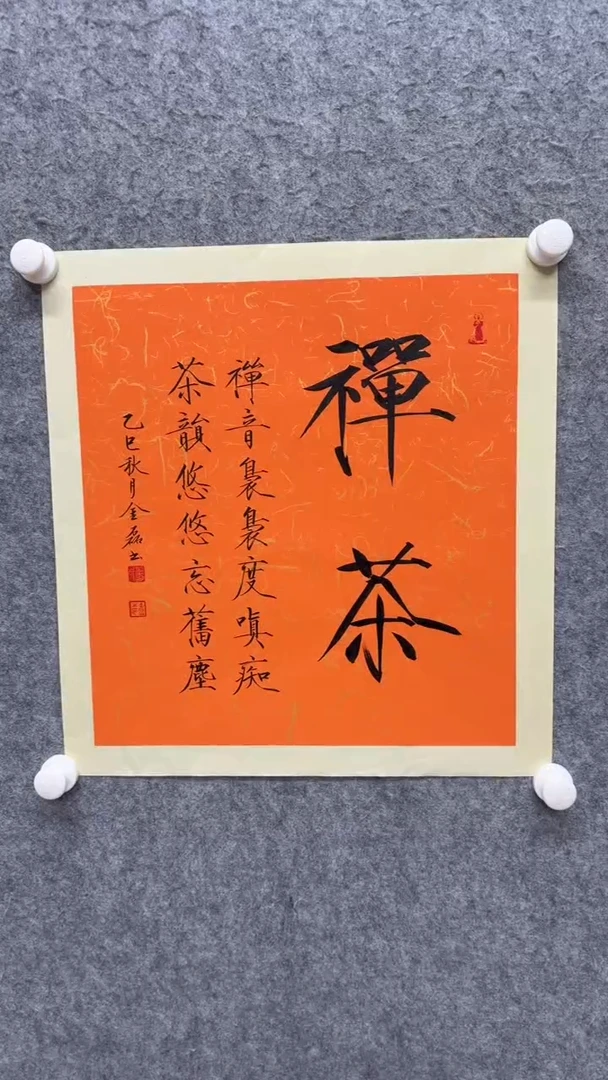 禪茶
禅音裊裊度嗔痴
茶韻悠悠忘舊塵
乙巳秋月金磊书